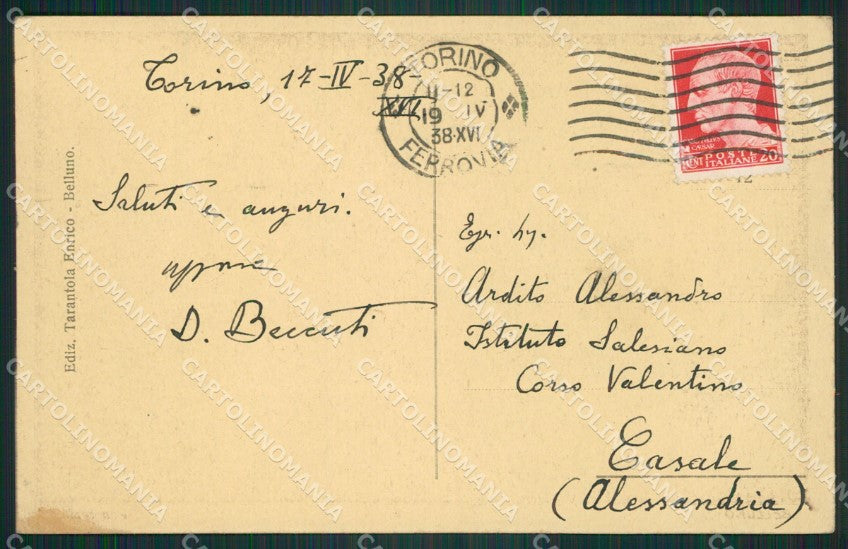 Torino, 17-IV-38-
XVI
TORINO
11-12
19 IV
38·XVI
FERROVIA
CENT POSTE 20
ITALIANE
CAESAR
Saluti e auguri.
D. Beccuti
Egr. Sig.
Ardito Alessandro
Istituto Salesiano
Corso Valentino
Casale
(Alessandria)
Ediz. Tarantola Enrico - Belluno.
CARTOLINOMANIA